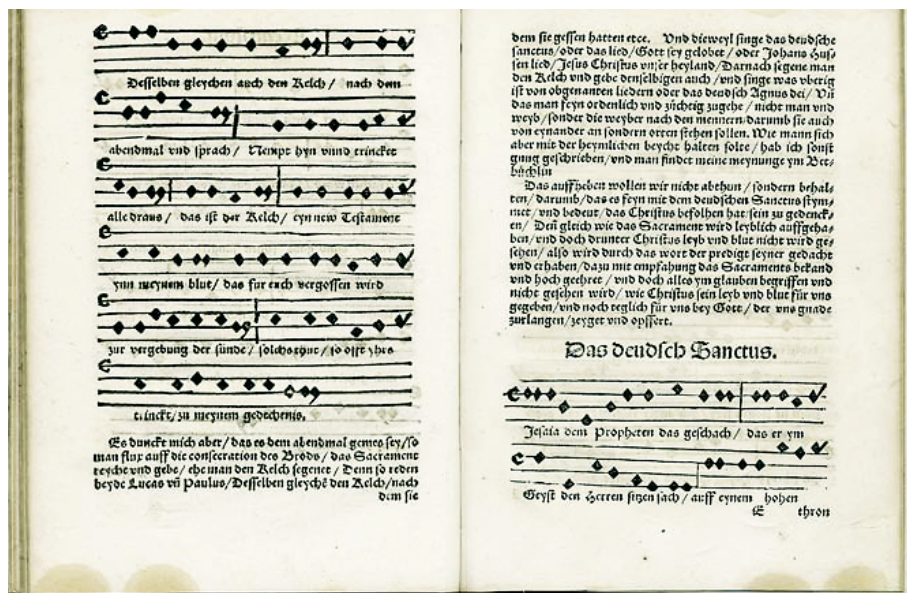 Desselben gleychen auch den Kelch / nach dem
abendmal vnd sprach / Nempt hyn vnnd trincket
alle draus / das ist der Kelch / eyn new Testament
ynn meynem blut / das fur euch vergossen wird
zur vergebung der sunde / solchs thut / so offt yhrs
trinckt / zu meynem gedechtnis.
Es dunckt mich aber / das es dem abendmal gemes sey / so
man flux auff die consecration des Brods / das Sacrament
reyche vnd gebe / ehe man den Kelch segenet / Denn so reden
beyde Lucas vñ Paulus / Desselben gleychē den Kelch / nach
dem sie
dem sie gessen hatten etce. Vnd dieweyl singe das deudsche
sanctus / oder das lied / Gott sey gelobet / oder Johans Hus-
sen lied / Jesus Christus vnser heyland / Darnach segene man
den Kelch vnd gebe denselbigen auch / vnd singe was vberig
ist von obgenanten liedern oder das deudsch Agnus dei / Vñ
das man feyn ordenlich vnd züchtig zugehe / nicht man vnd
weyb / sonder die weyber nach den mennern / darumb sie auch
von eynander an sondern orten stehen sollen. Wie mann sich
aber mit der heymlichen beycht halten solte / hab ich sonst
gnung geschrieben / vnd man findet meine meynunge ym Bet-
büchlin
Das auffheben wollen wir nicht abthun / sondern behal-
ten / darumb / das es feyn mit dem deudschen Sanctus stym-
met / vnd bedeut / das Christus befolhen hat / sein zu gedenck-
en / Deñ gleich wie das Sacrament wird leyblich auffgeha-
ben / vnd doch drunter Christus leyb vnd blut nicht wird ge-
sehen / also wird durch das wort der predigt seyner gedacht
vnd erhaben / dazu mit empfahung das Sacraments bekand
vnd hoch geehret / vnd doch alles ym glauben begriffen vnd
nicht gesehen wird / wie Christus sein leyb vnd blut für vns
gegeben / vnd noch teglich für vns bey Gott / der vns gnade
zurlangen / zeyget vnd opffert.
Das deudsch Sanctus.
Jesaia dem Propheten das geschach / das er ym
Geyst den Herren sitzen sach / auff eynem hohen
E thron